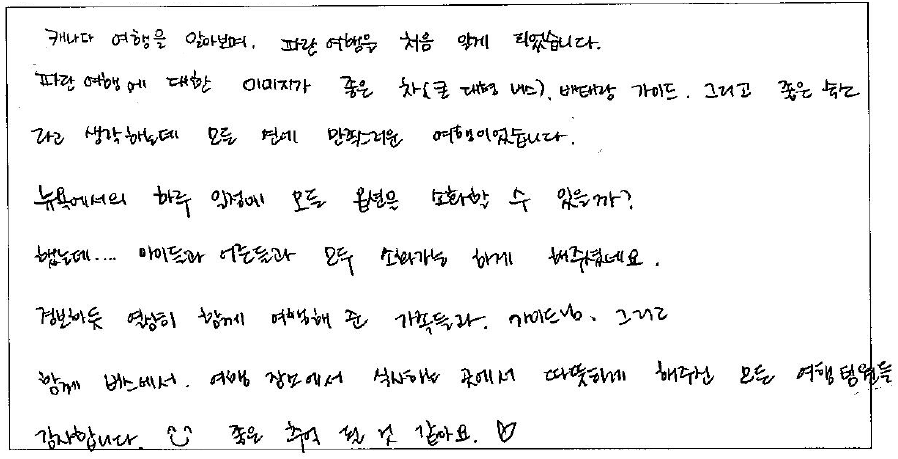 캐나다 여행을 알아보며, 파란여행을 처음 알게 되었습니다.
파란여행에 대한 이미지가 좋은 차(큰 대형 버스), 베테랑 가이드. 그리고 좋은 숙소
라고 생각했는데 모든 면에 만족스러운 여행이었습니다.
뉴욕에서의 하루 일정에 모든 옵션을 소화할 수 있을까?
했는데.... 아이들과 어른들과 모두 소화가능 하게 해주셨네요.
경보하듯 열심히 함께 여행해 준 가족들과. 가이드님. 그리고
함께 버스에서. 여행 장소에서 식사하는 곳에서 따뜻하게 해주신 모든 여행팀원들
감사합니다. 좋은 추억 될 것 같아요.